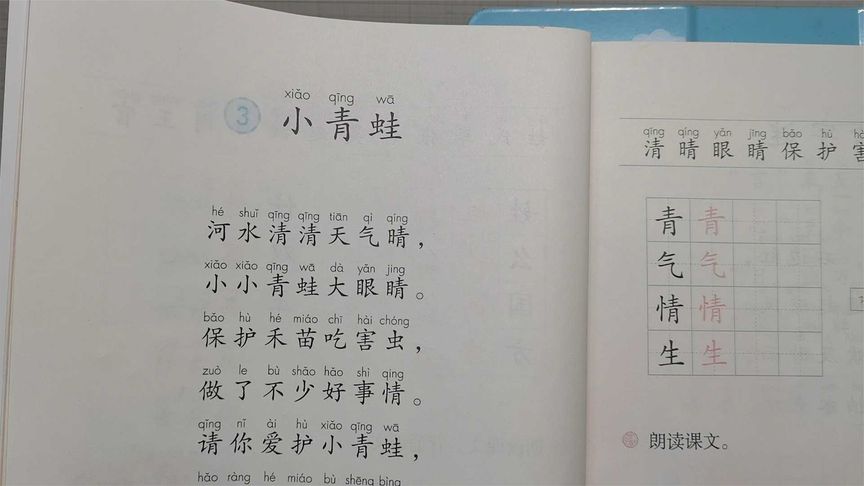 xiǎo qīng wā
3 小青蛙
hé shuǐ qīng qīng tiān qì qíng
河水清清天气晴，
xiǎo xiǎo qīng wā dà yǎn jing
小小青蛙大眼睛。
bǎo hù hé miáo chī hài chóng
保护禾苗吃害虫，
zuò le bù shǎo hǎo shì qing
做了不少好事情。
qǐng nǐ ài hù xiǎo qīng wā
请你爱护小青蛙，
hǎo ràng hé miáo bù shēng bìng
qīng qíng yǎn jīng bǎo hù
清晴眼睛保护害
青 青
气 气
情 情
生 生
朗读课文。